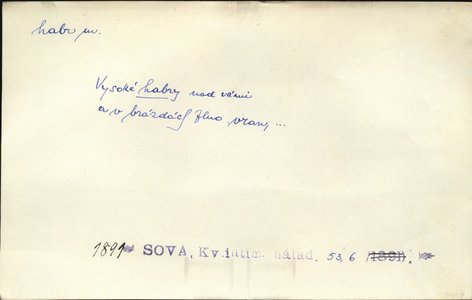 habr m.
Vysoké habry nad vámi
a v brázdách
vran, ...
1891 SOVA, Kv. intim. nálad. 53, 6 (1891).